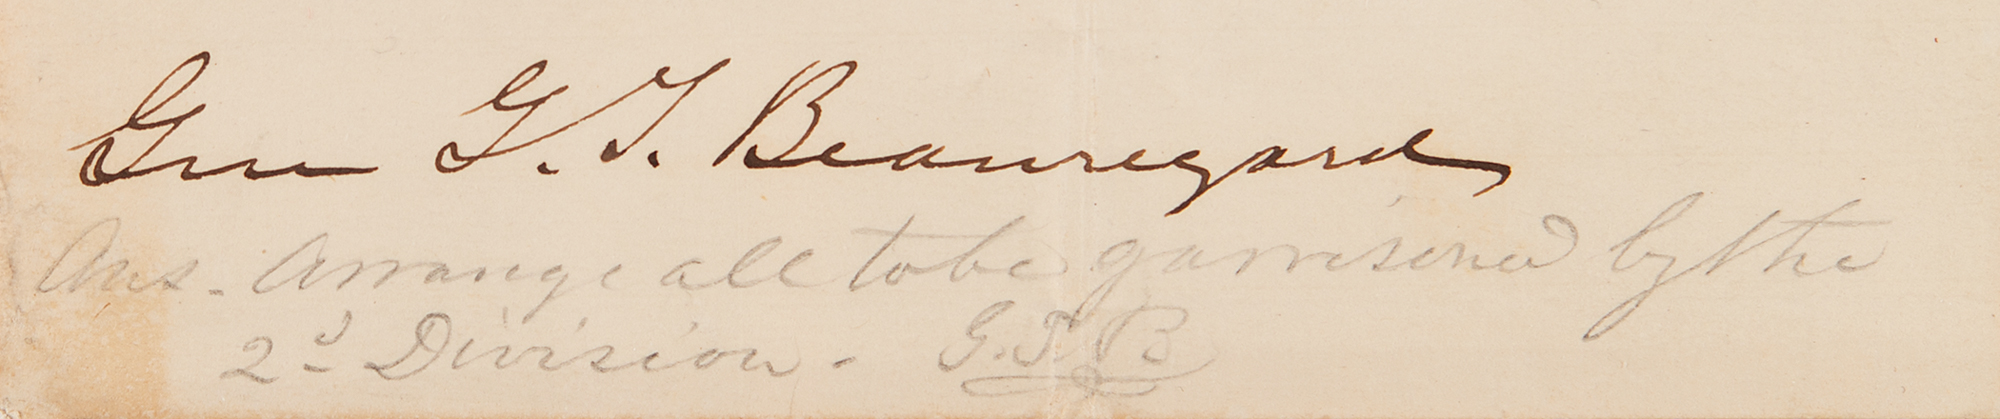 Gen G. T. Beauregard
Ans. Arrange all to be garrisoned by the
2d Division. G.T.B